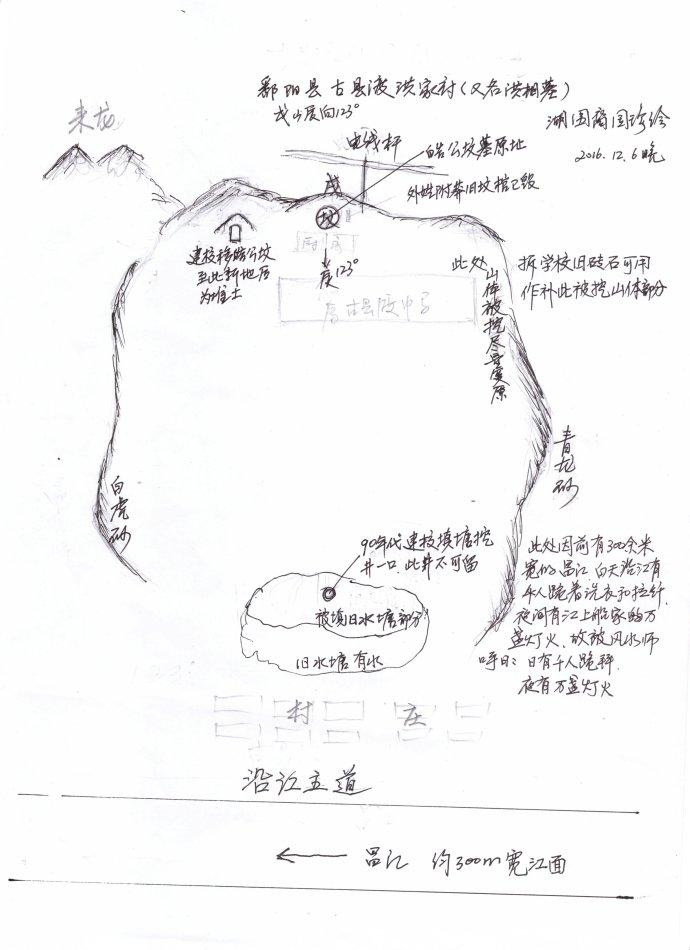 鄱阳县古县渡洪家村(又名洪相墓)
戌山辰向123°
湖园裔国珍绘
2016.12.6晚
来龙
电线杆
皓公坟墓原地
外姓附葬旧坟棺已毁
戌
坟
厨房
辰123°
建校移皓公坟
至此新地后
为堆土
此处
山体被挖尽量复原
拆学校旧砖石可用
作补此被挖山体部分
古县渡中学
青龙砂
白虎砂
90年代建校填塘挖
井一口.此井不可留
被填旧水塘部分
旧水塘有水
此处因前有300余米
宽的昌江.白天沿江有
人跪着洗衣和拉纤
夜间有江上船家的万
盏灯火.故被风水师
呼曰:日有千人跪拜.
夜有万盏灯火
村 庄
沿江主道
昌江 约300m宽江面